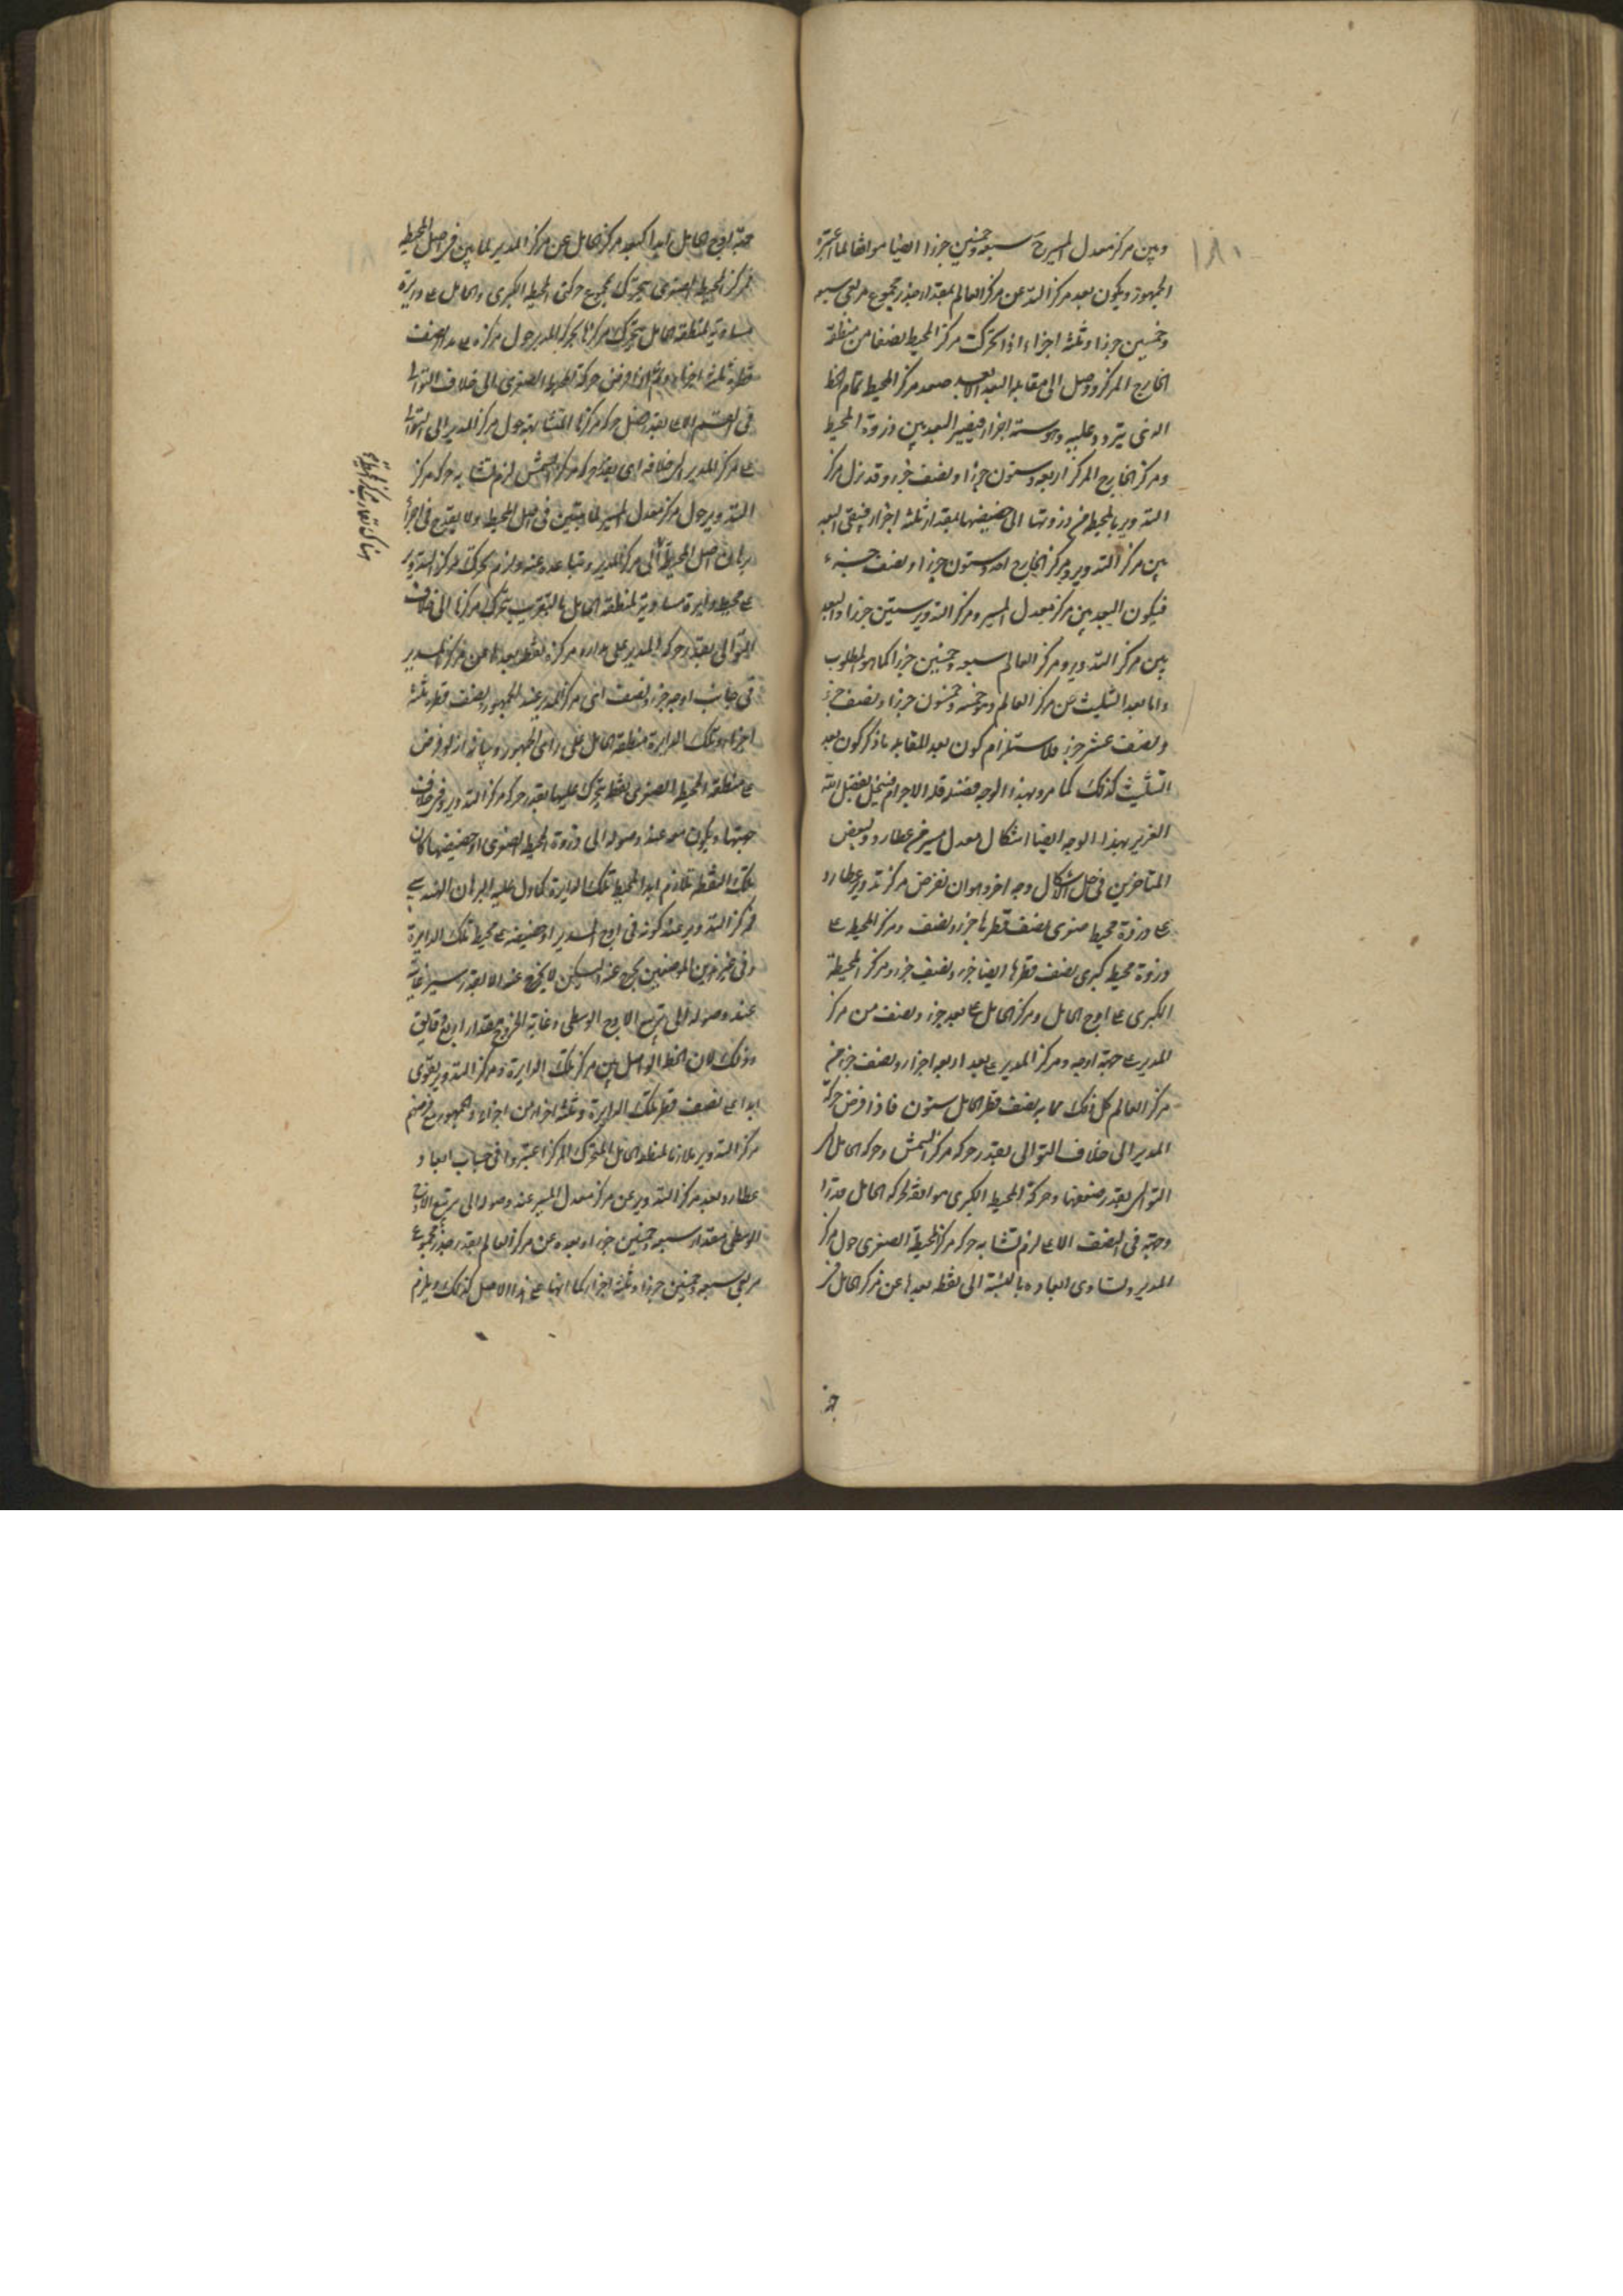 ١٨٠
وبين مركز معدل المسير سبعة وخمسين جزءا ايضا موافقا لما اعتبره
الجمهور ويكون بعد مركز التد عن مركز العالم بمقدار جذر مجموع مربعي سبعة
وخمسين جزءا وثلثة اجزاء اذا تحركت مركز المحيطة نصفا من منطقة
الخارج المركز ووصل الى مقابلة البعد الابعد صعد مركز المحيط تمام الخط
الذى يتردد عليه وهو ستة اجزاء فيصير البعد بين ذروة المحيط
ومركز الخارج المركز اربعة وستون جزءا ونصف جزء وقد نزل مركز
التدوير بالمحيط من ذروتها الى حضيضها بمقدار ثلثة اجزاء فبقى البعد
بين مركز التدوير ومركز الخارج احد وستون جزءا ونصف جزء
فيكون البعد بين مركز معدل المسير ومركز التدوير ستين جزءا والبعد
بين مركز التدوير ومركز العالم سبعة وخمسين جزءا كما هو المطلوب
واما بعد التثليث عن مركز العالم وهو خمسة وخمسون جزءا ونصف جزء
ونصف عشر جزء فلاستلزام كون بعد المقابلة ما ذكر كون بعد
التثليث كذلك كما مر وبهذا الوجه فلا جرم ينحل بفضل الله
العزيز بهذا الوجه ايضا اشكال معدل مسير عطارد ولبعض
المتاخرين فى حل الاشكال وجه اخر وهو ان نفرض مركز تدوير عطارد
على ذروة محيط صغرى نصف قطرها جزء ونصف ومركز المحيط على
ذروة محيط كبرى نصف قطرها ايضا جزء ونصف جزء ومركز المحيطة
الكبرى على اوج الحامل ومركز الحامل على بعد جزء ونصف من مركز
المدير على جهة اوجه ومركز المدير على بعد اربعة اجزاء ونصف جزء من
مركز العالم كل ذلك مما به نصف قطر الحامل ستون فاذا فرض حركة
المدير الى خلاف التوالى بقدر حركة مركز الشمس وحركة الحامل الى
التوالى بقدر ضعفها وحركة المحيط الكبرى موافقة لحركة الحامل قدرا
وجهة فى النصف الاعلى لزم تشابه حركة مركز المحيطة الصغرى حول مركز
المدير وتساوى ابعاده بالنسبة الى نقطة بعدها عن مركز الحامل من
جهة
جهة اوج الحامل ابدا كبعد مركز الحامل عن مركز المدير لما بين فى اصل المحيطة
فمركز المحيط الصغرى يتحرك بمجموع حركتى المحيط الكبرى والحامل على دايرة
مساوية لمنطقة الحامل يتحرك مركزها بحركة المدير حول مركزه على مدار نصف
قطره ثلثة اجزاء ثم اذا فرض حركة المحيط الصغرى الى خلاف التوالى
فى القسم الاعلى بقدر فضل حركة مركزها المتشابهة حول مركز المدير الى التوالى
على مركز المدير الى خلافه اى بقدر حركة مركز الشمس لزم تشابه حركة مركز
التدوير حول مركز معدل المسير لما بين فى اصل المحيط ولا يقدح فى اجراء
برهان اصل المحيطة
على محيط دايرة مساوية لمنطقة الحامل بالتقريب يتحرك مركزها الى خلاف
التوالى بقدر حركة المدير على مدار مركزه نقطة بعدها عن مركز المدير
فى جانب اوجه جزء ونصف اى مركز المدير عند الجمهور ونصف قطره ثلثة
اجزاء وتلك الدايرة منطقة الحامل على راى الجمهور وبيانه انه لو فرض
على منطقة المحيط الصغرى نقطة يتحرك عليها بقدر حركة مركز التدوير وفى خلاف
جهتها ويكون معه عند وصوله الى ذروة المحيط الصغرى او حضيضها كان
تلك النقطة تلازم ابدا محيط تلك الدايرة كما دل عليه البرهان الهندسى
فمركز التدوير عند كونه فى اوج المدير او حضيضه على محيط تلك الدايرة
وفى غير هذين الموضعين يخرج عنه ولكن لا يخرج عنه الا بقدر يسير غايته
عند وصوله الى تربيع الاوج الاوسطى وغاية الخروج بمقدار اربع دقايق
وذلك لان الخط الواصل بين مركز تلك الدايرة ومركز التدوير يقوى
ابدا على نصف قطر تلك الدايرة وثلثة اجزاء من اجزاء والجمهور مع فرضهم
مركز التدوير ملازما لمنطقة الحامل المتحرك المركز اعتبروا فى حساب ابعاد
عطارد بعد مركز التدوير عن مركز معدل المسير عند وصوله الى تربيع الاوج
الاوسطى بمقدار سبعة وخمسين جزءا وبعده عن مركز العالم بقدر جذر مجموع
مربعى سبعة وخمسين جزءا وثلثة اجزاء كما انها على هذا الاصل كذلك ويلزم